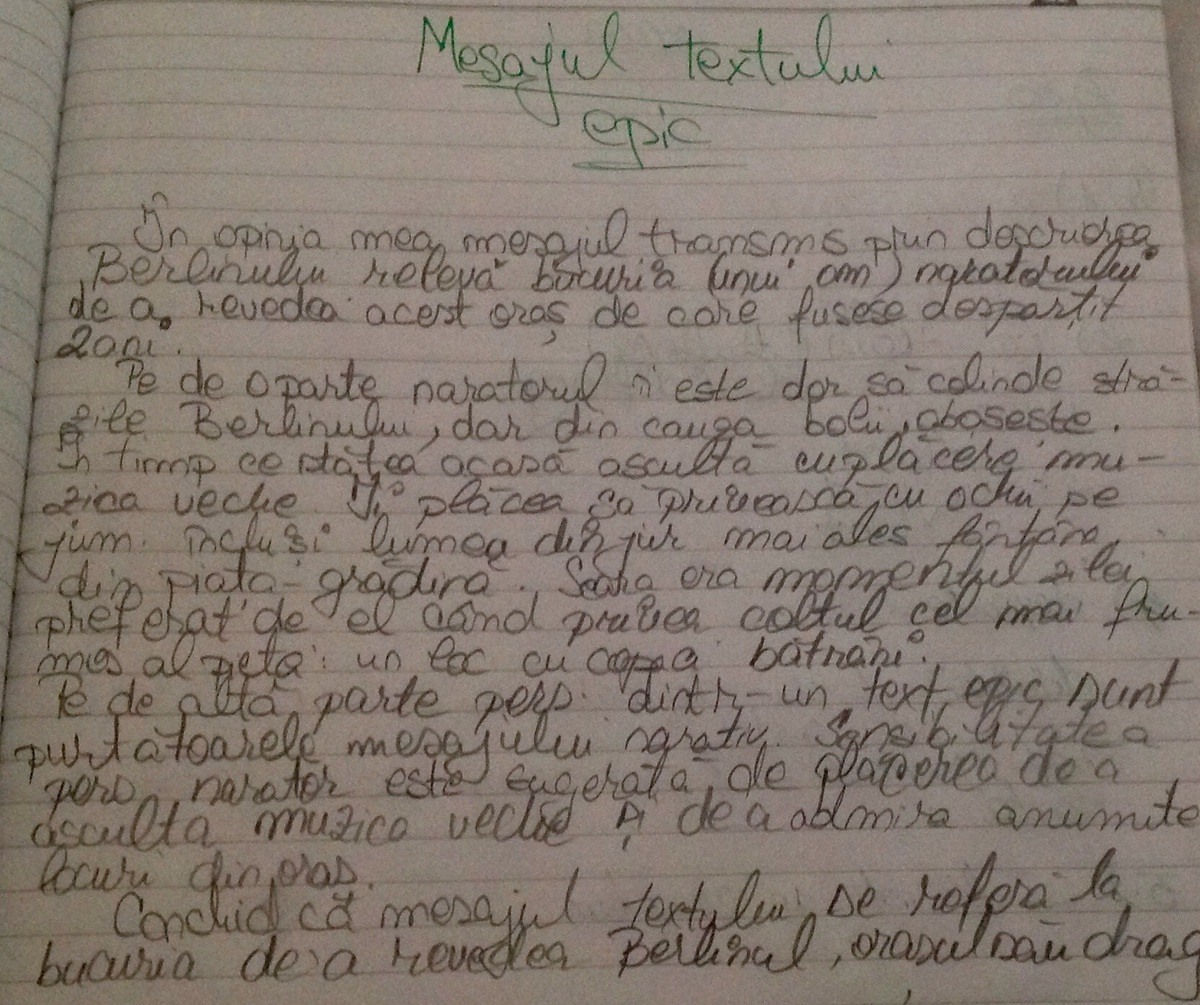 Mesajul textului
epic
În opinia mea, mesajul transmis prin descrierea
Berlinului relevă bucuria (unui om) naratorului
de a revedea acest oraș de care fusese despărțit
2 ani.
Pe de o parte naratorul îi este dor să colinde stră-
zile Berlinului, dar din cauza bolii, obosește.
În timp ce stătea acasă ascultă cu plăcere mu-
zica veche. Îi plăcea să privească, cu ochii pe
jum. incluși lumea din jur mai ales fântâna
din piața-grădină. Seara era momentul zilei
preferat de el când privea colțul cel mai fru-
mos al pieței: un loc cu copaci bătrâni.
Pe de altă parte pers. dintr-un text epic sunt
purtătoarele mesajului narativ. Sensibilitatea
pers. narator este sugerată de plăcerea de a
asculta muzica veche și de a admira anumite
locuri din oraș.
Conchid că mesajul textului se referă la
bucuria de a revedea Berlinul, orașul său drag